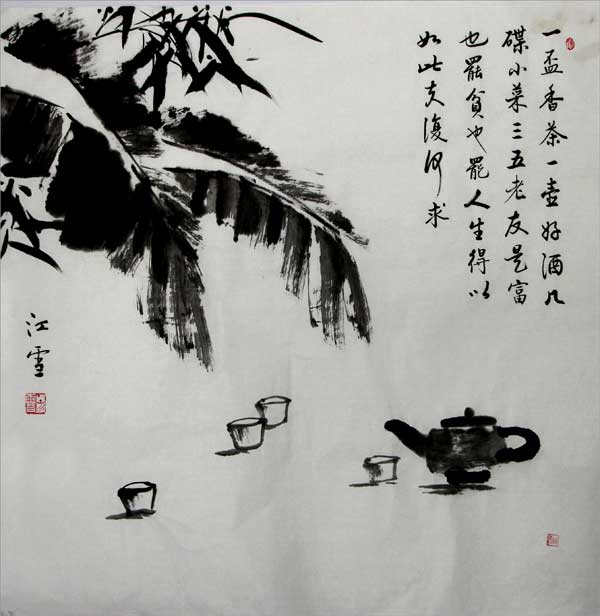 一盃香茶一壺好酒几
碟小菜三五老友是富
也罷貧也罷人生得以
如此夫復何求
江雪